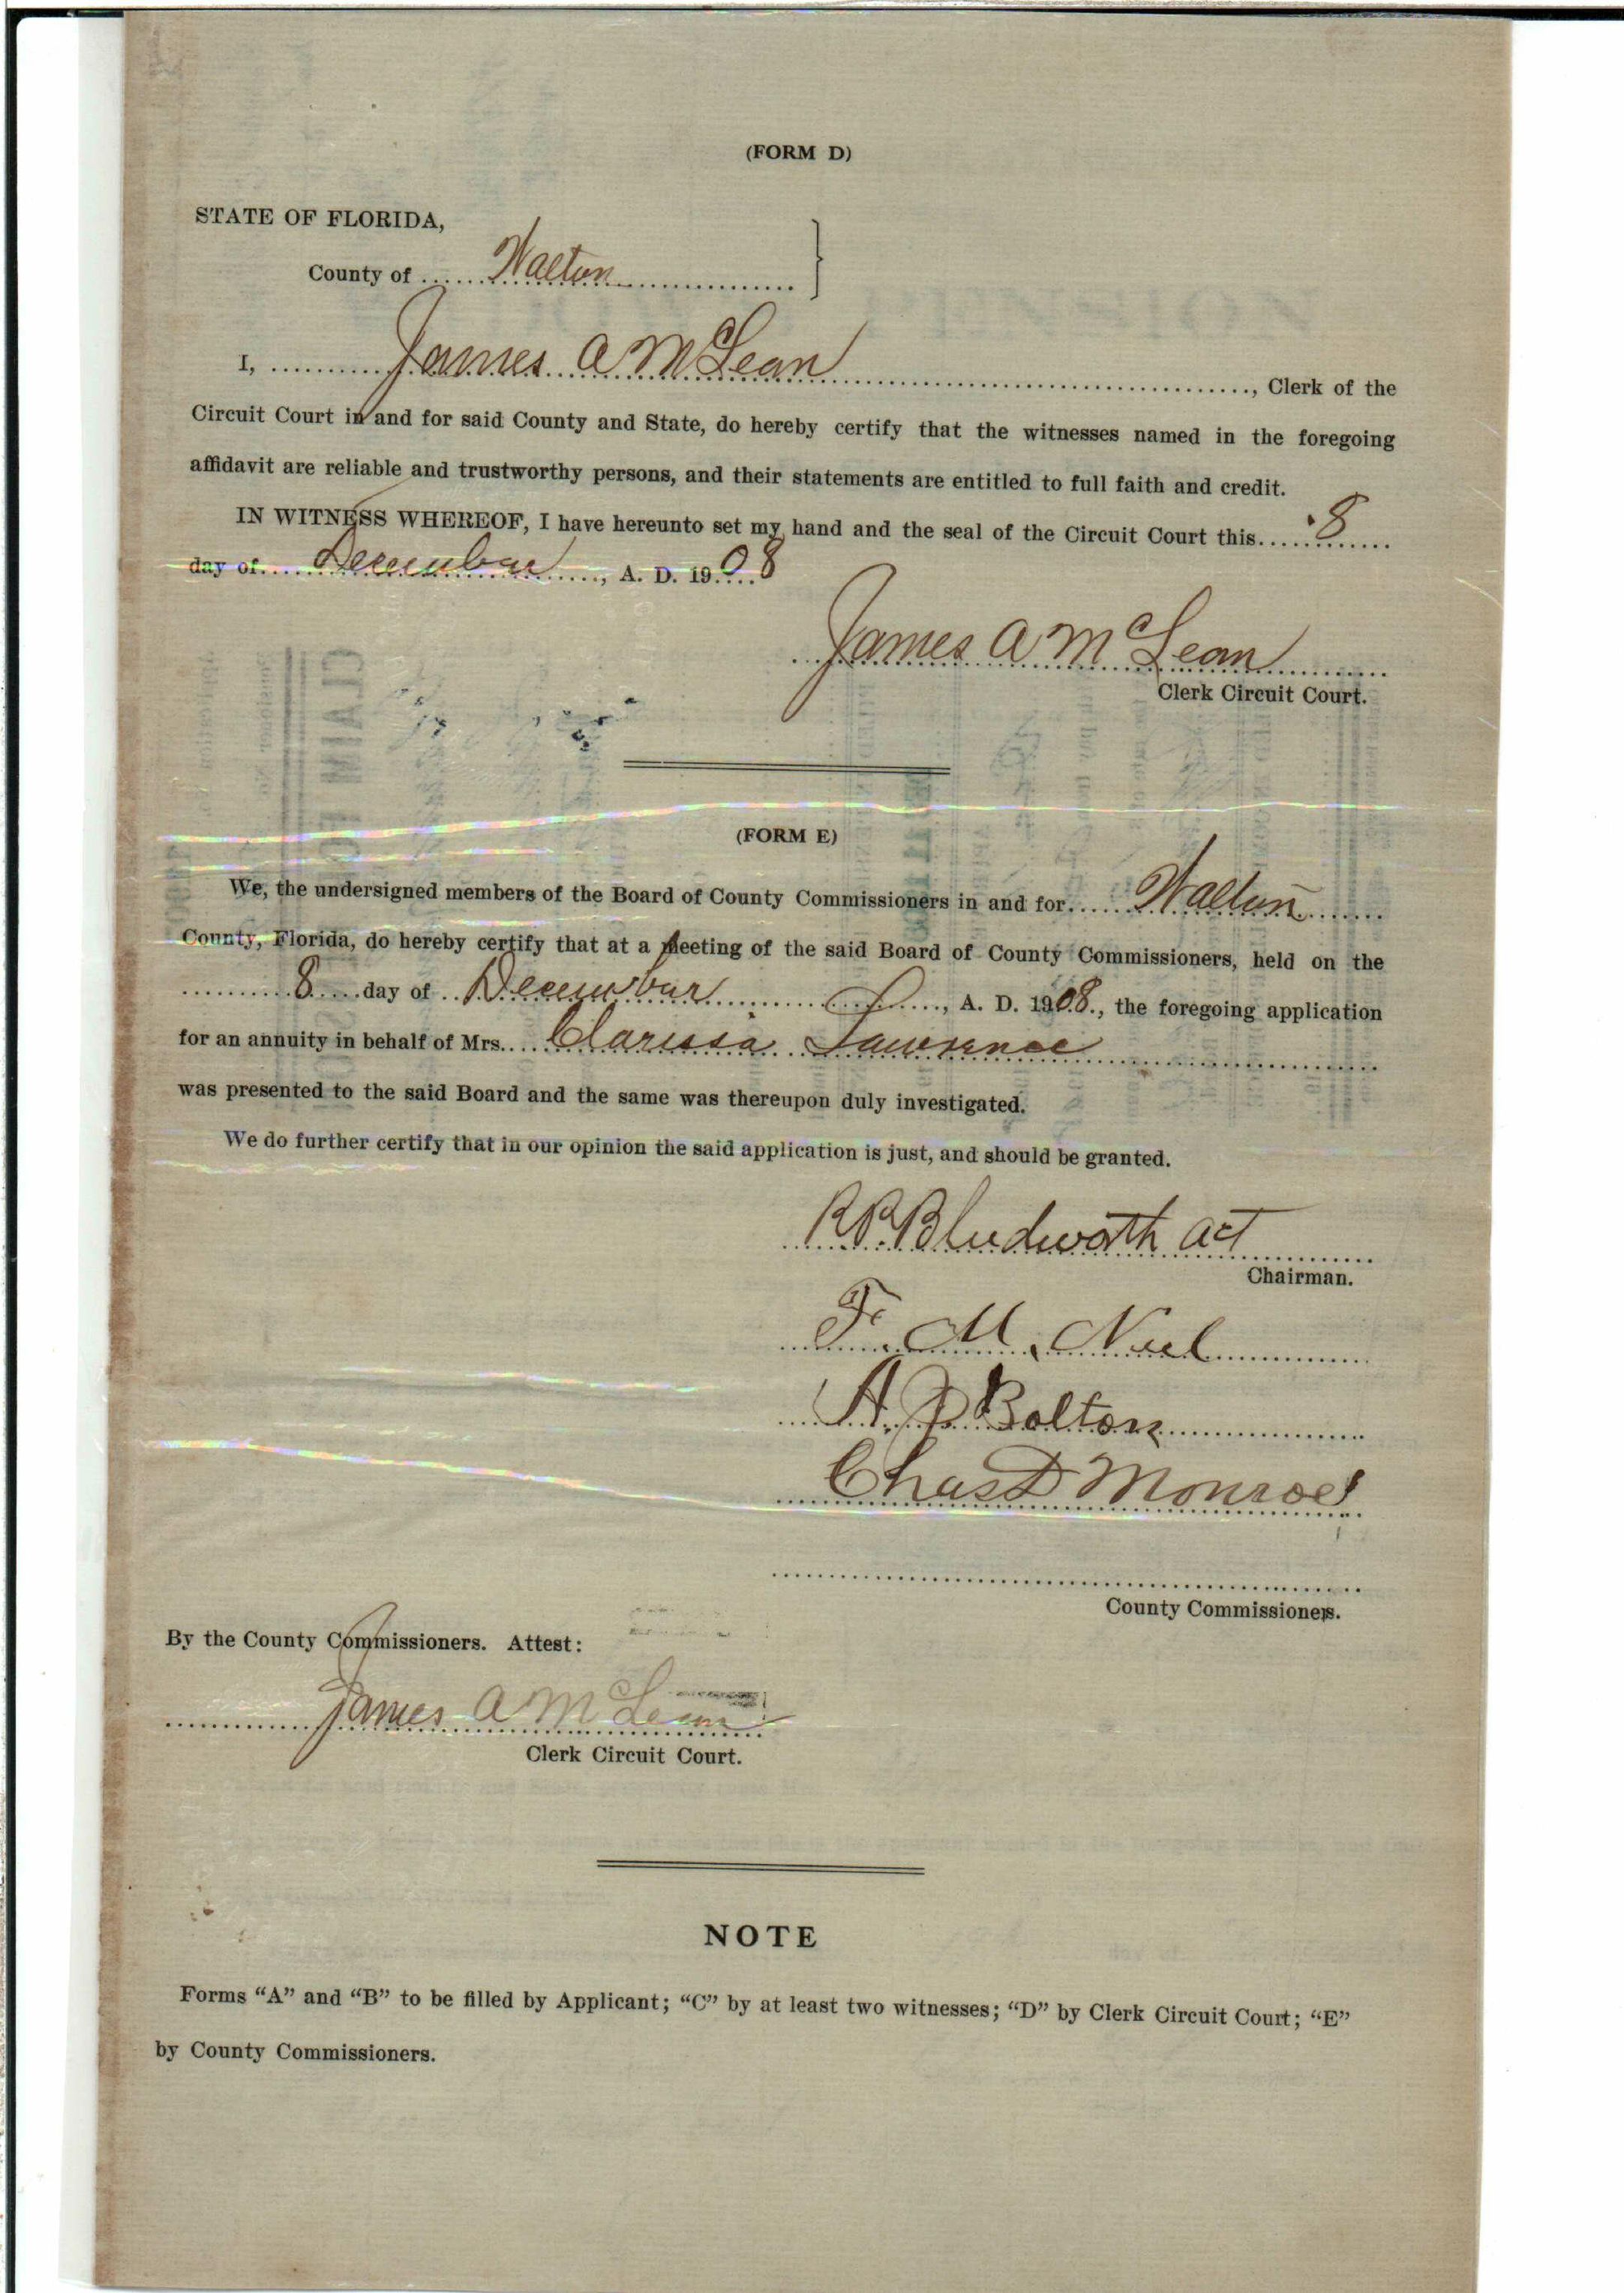 (FORM D)
STATE OF FLORIDA,
County of Walton
I, James A McLean, Clerk of the
Circuit Court in and for said County and State, do hereby certify that the witnesses named in the foregoing
affidavit are reliable and trustworthy persons, and their statements are entitled to full faith and credit.
IN WITNESS WHEREOF, I have hereunto set my hand and the seal of the Circuit Court this 8
day of December, A. D. 1908
James A McLean
Clerk Circuit Court.
(FORM E)
We, the undersigned members of the Board of County Commissioners in and for Walton
County, Florida, do hereby certify that at a meeting of the said Board of County Commissioners, held on the
8 day of December, A. D. 1908., the foregoing application
for an annuity in behalf of Mrs. Clarissa Lawrence
was presented to the said Board and the same was thereupon duly investigated.
We do further certify that in our opinion the said application is just, and should be granted.
Bludworth act
Chairman.
F. M. Neel
Bolton
Chas D Monroe
County Commissioners.
By the County Commissioners. Attest:
James A McLean
Clerk Circuit Court.
NOTE
Forms “A” and “B” to be filled by Applicant; “C” by at least two witnesses; “D” by Clerk Circuit Court; “E”
by County Commissioners.